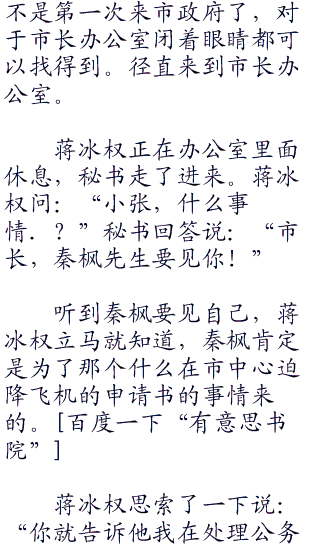 不是第一次来市政府了，对
于市长办公室闭着眼睛都可
以找得到。径直来到市长办
公室。
蒋冰权正在办公室里面
休息，秘书走了进来。蒋冰
权问：“小张，什么事
情．？”秘书回答说：“市
长，秦枫先生要见你！”
听到秦枫要见自己，蒋
冰权立马就知道，秦枫肯定
是为了那个什么在市中心迫
降飞机的申请书的事情来
的。[百度一下“有意思书
院”]
蒋冰权思索了一下说：
“你就告诉他我在处理公务